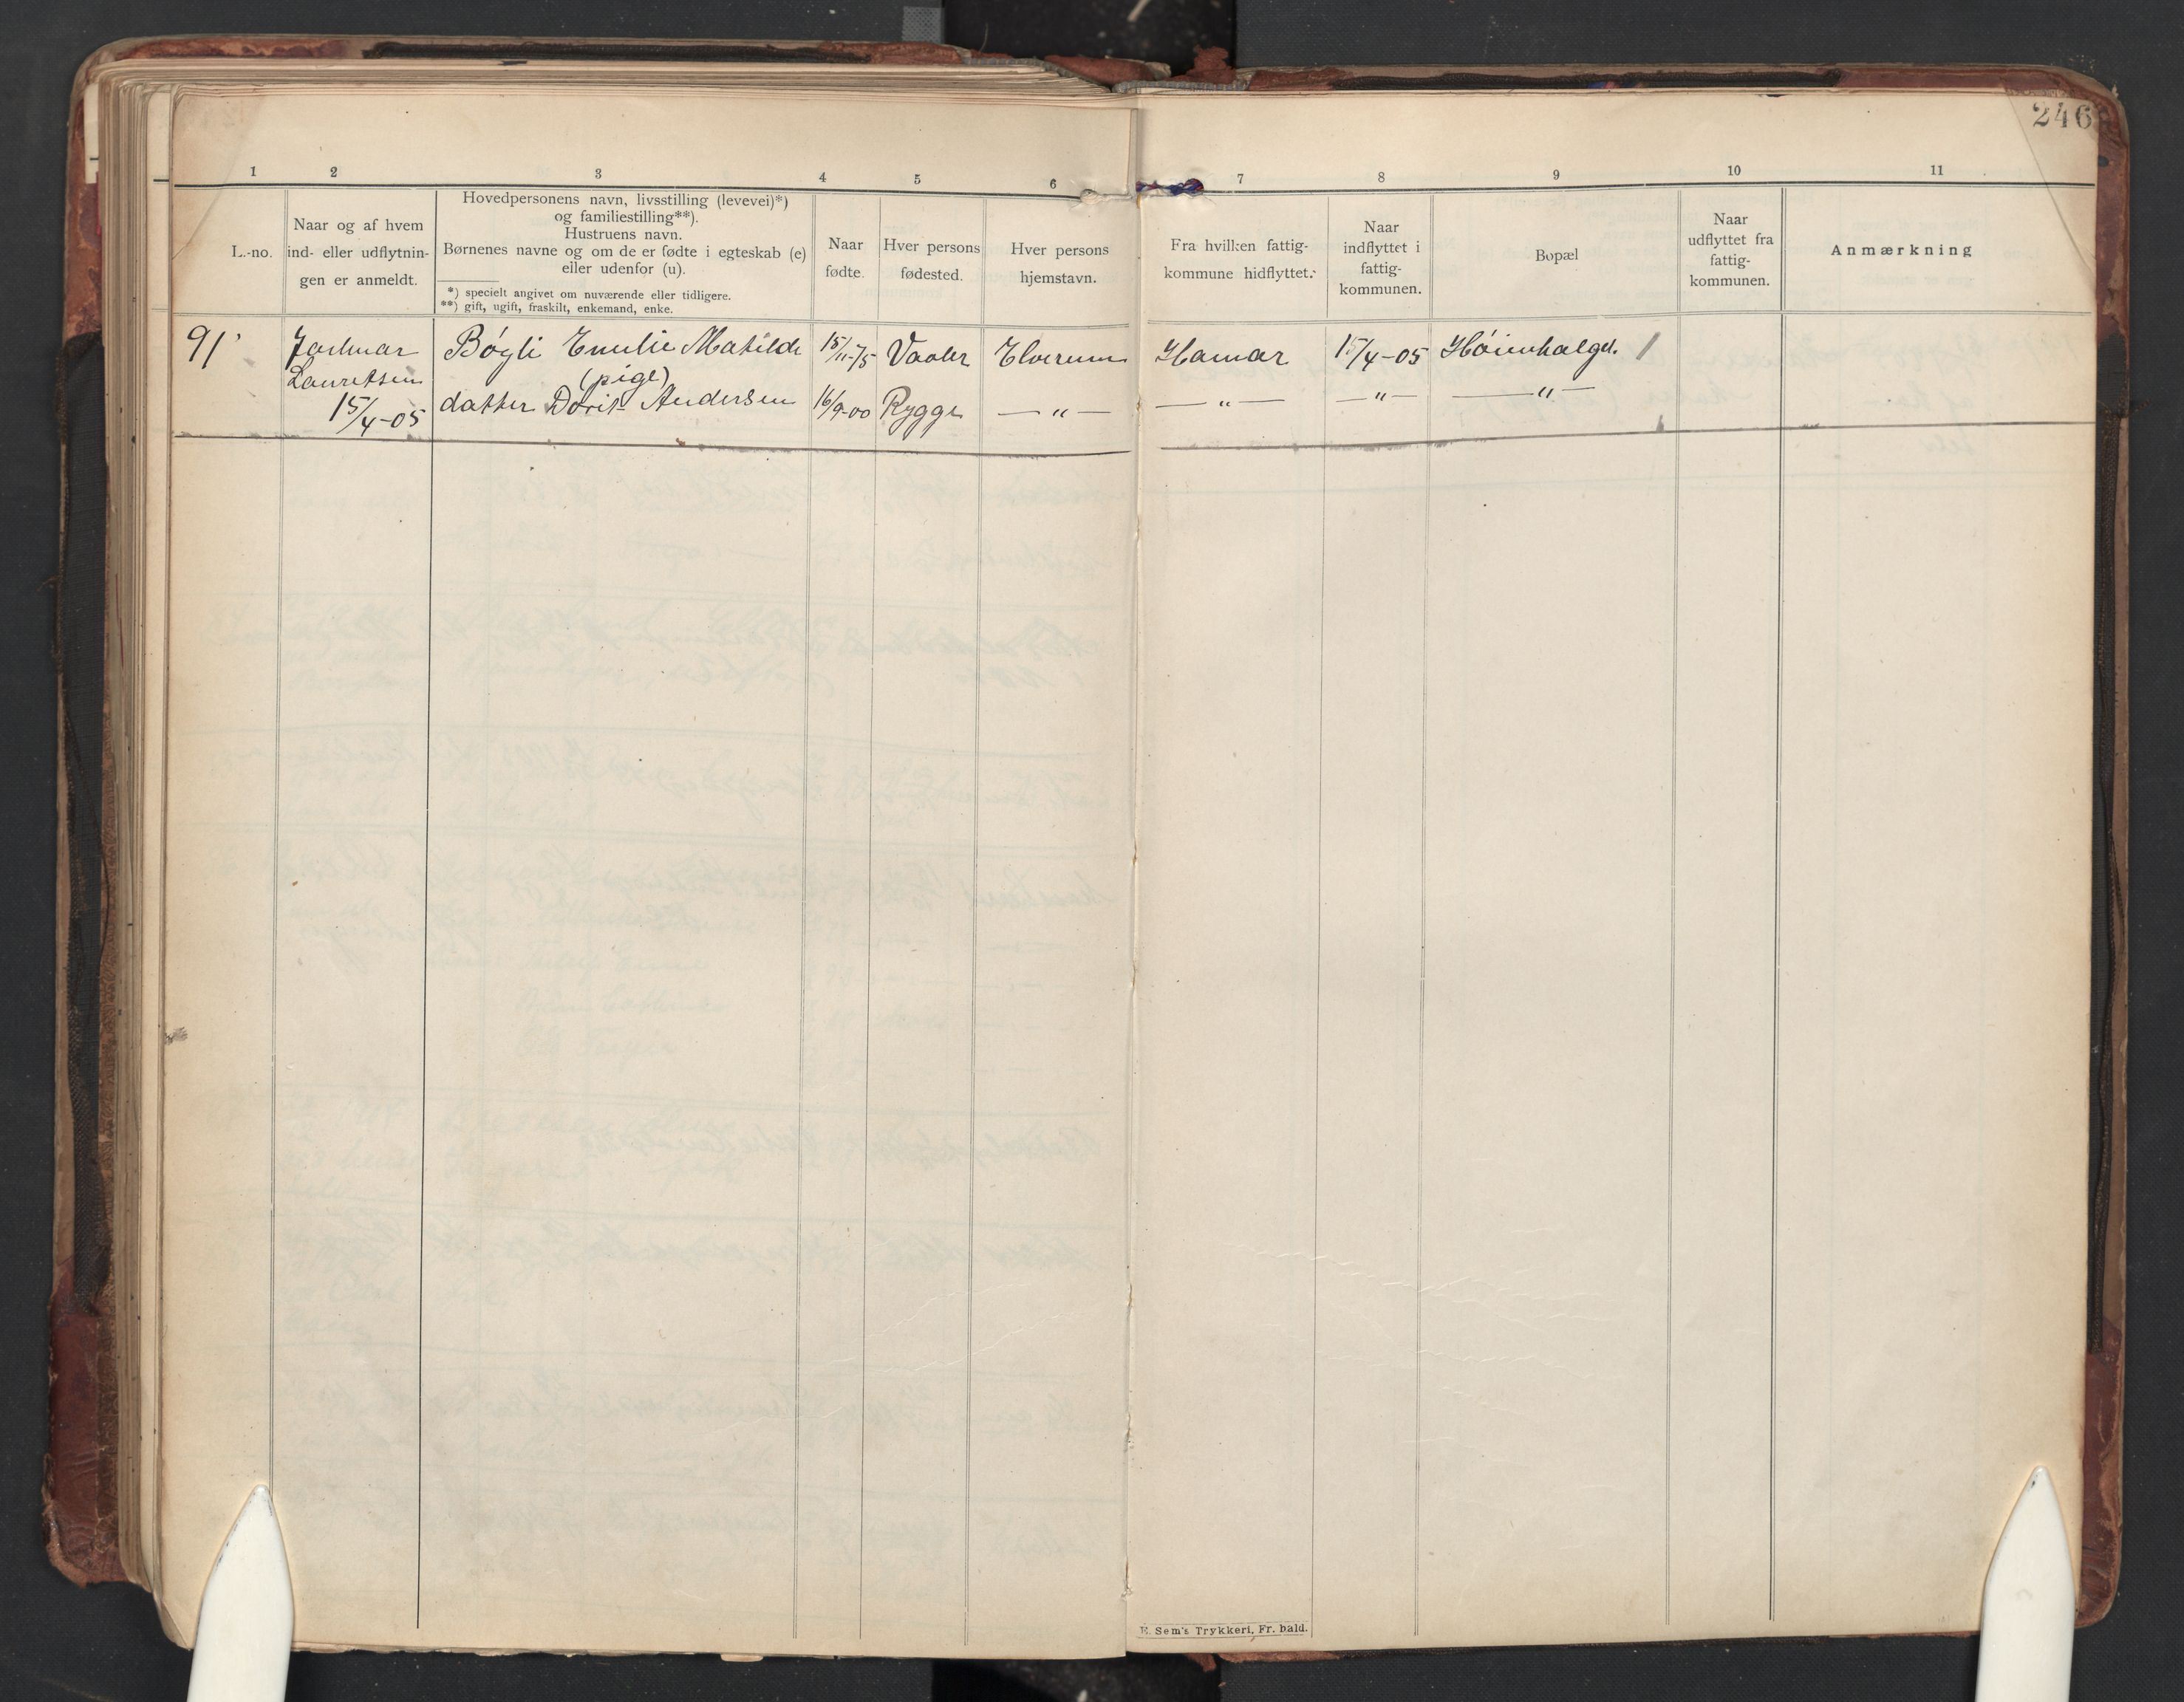 246
1 2 3 4 5 6 7 8 9 10 11
L.-no.
Naar og af hvem
ind- eller udflytnin-
gen er anmeldt.
Hovedpersonens navn, livsstilling (levevei)*)
og familiestilling**).
Hustruens navn.
Børnenes navne og om de er fødte i egteskab (e)
eller udenfor (u).
*) specielt angivet om nuværende eller tidligere.
**) gift, ugift, fraskilt, enkemand, enke.
Naar
fødte.
Hver persons
fødested.
Hver persons
hjemstavn.
Fra hvilken fattig-
kommune hidflyttet.
Naar
indflyttet i
fattig-
kommunen.
Bopæl
Naar
udflyttet fra
fattig-
kommunen.
Anmærkning
91 Bøgli Emilie Matilde 15/11-75 Vaaler Elverum Hamar 15/4-05
Lauretsen (pige)
15/4-05 datter Dorit Andersen 16/9-00 Rygge —"— —"— —"— —"—
E. Sem's Trykkeri, Fr. hald.